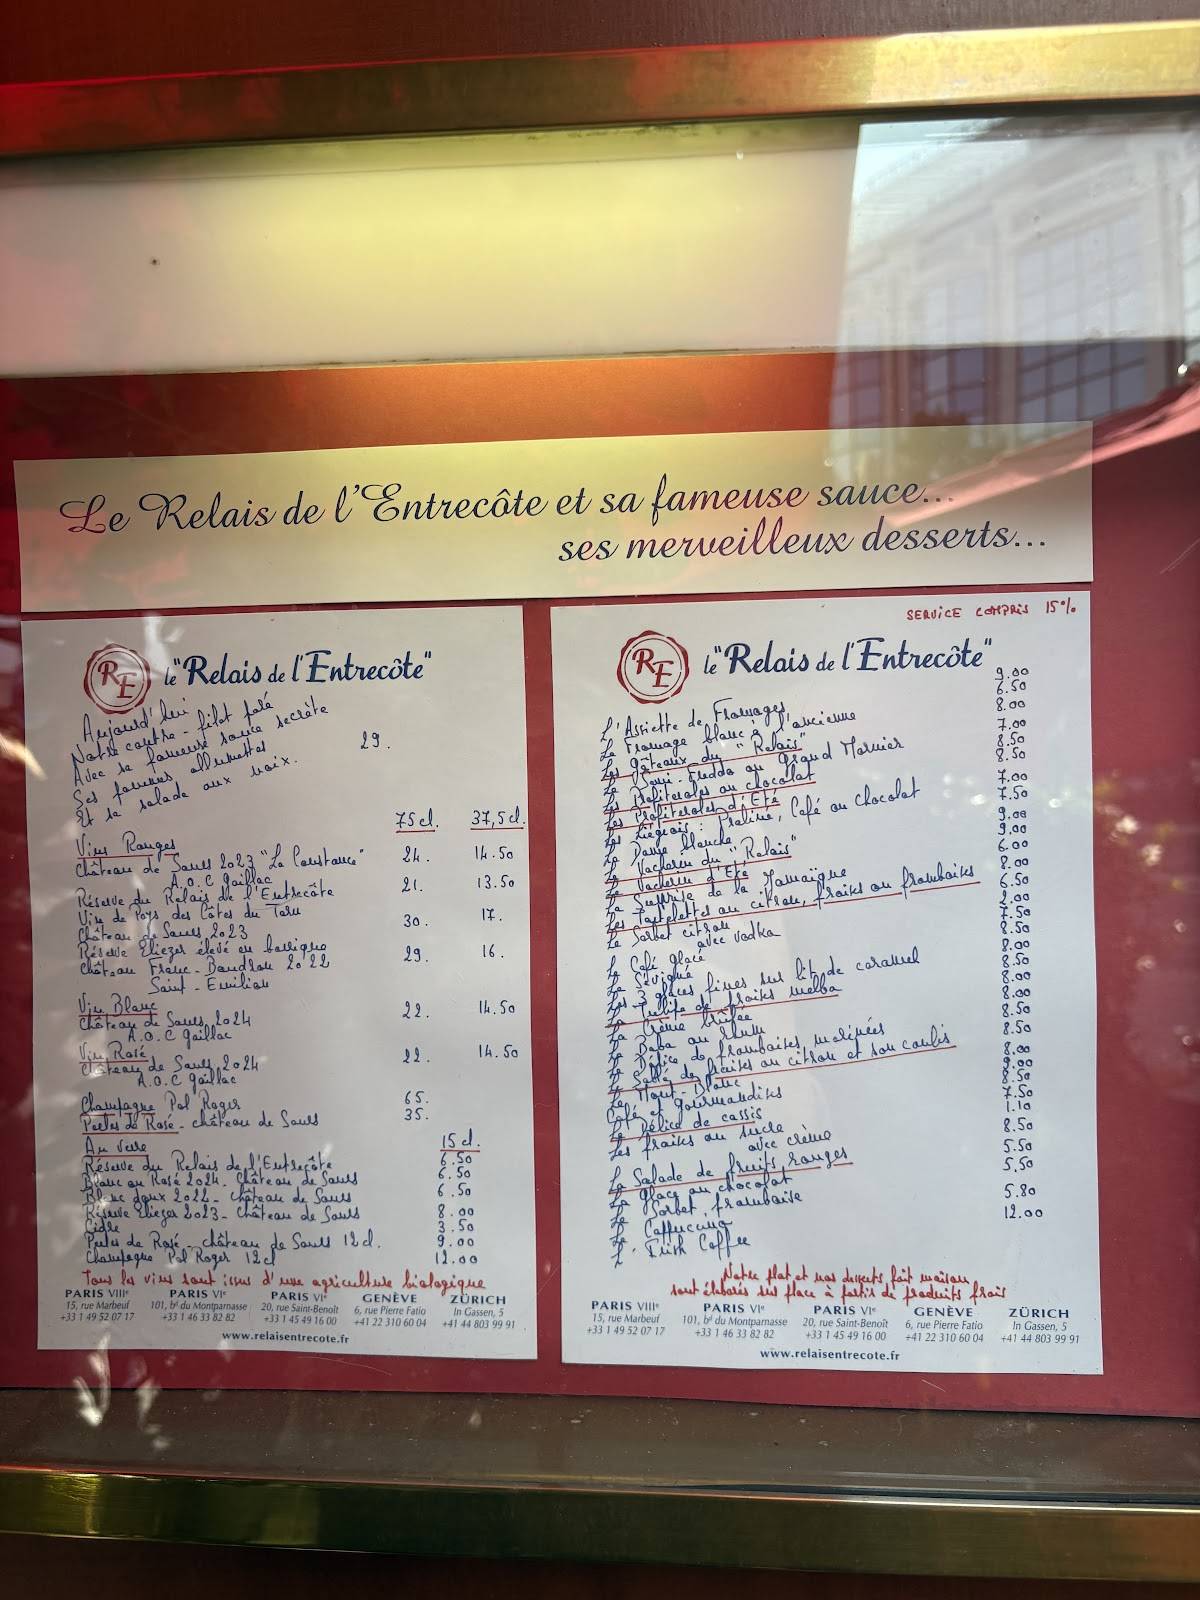 Le Relais de l'Entrecôte et sa fameuse sauce...
ses merveilleux desserts...
RE le "Relais de l'Entrecôte"
Aujourd'hui
Notre contre-filet paré
Avec sa fameuse sauce secrète
Ses pommes allumettes 29.
Et sa salade aux noix.
75cl. 37,5cl.
Vins Rouges
Château de Saurs 2023 "La Constance" 24. 14.50
A.O.C Gaillac
Réserve du Relais de l'Entrecôte 21. 13.50
Vin de Pays des Côtes du Tarn
Château de Saurs 2023 30. 17.
Réserve Eliezer élevé en barrique
Château Franc-Baudron 2022 29. 16.
Saint-Emilion
Vin Blanc
Château de Saurs 2024 22. 14.50
A.O.C Gaillac
Vin Rosé
Château de Saurs 2024 22. 14.50
A.O.C Gaillac
Champagne Pol Roger 65.
Perles de Rosé - château de Saurs 35.
Au verre 15cl.
Réserve du Relais de l'Entrecôte 6.50
Blanc ou Rosé 2024 - Château de Saurs 6.50
Blanc doux 2022 - Château de Saurs 6.50
Réserve Eliezer 2023 - Château de Saurs 8.00
Cidre 3.50
Perles de Rosé - château de Saurs 12cl. 9.00
Champagne Pol Roger 12cl 12.00
Tous les vins sont issus d'une agriculture biologique
PARIS VIIIe PARIS VIe PARIS VIe GENÈVE ZÜRICH
15, rue Marbeuf 101, bd du Montparnasse 20, rue Saint-Benoît 6, rue Pierre Fatio In Gassen, 5
+33 1 49 52 07 17 +33 1 46 33 82 82 +33 1 45 49 16 00 +41 22 310 60 04 +41 44 803 99 91
www.relaisentrecote.fr
SERVICE COMPRIS 15%
RE le "Relais de l'Entrecôte"
L'Assiette de Fromages 9.00
Le Fromage blanc à l'ancienne 6.50
Les Gâteaux du "Relais" 8.00
Le Semi-Freddo au Grand Marnier 7.00
Les Profiteroles au chocolat 8.50
Les Profiteroles d'Eté 8.50
Les Liégeois : Praline, Café ou Chocolat 7.00
La Dame blanche 7.50
Le Vacherin du "Relais" 9.00
Le Vacherin d'Eté 9.00
La Surprise de la Jamaïque 6.00
Les Tartelettes au citron, fraises ou framboises 8.00
Le Sorbet citron 6.50
avec vodka 2.00
Le Café glacé 7.50
La Sévigné 8.50
Les 3 glaces fines sur lit de caramel 8.00
La Tulipe de fraises melba 8.50
La Crème brûlée 8.00
Le Baba au Rhum 8.00
Le Délice de framboises marinées 8.50
Le Sablé de fraises au citron et son coulis 8.50
Le Mont-Blanc 8.00
Café et gourmandises 9.00
Le Délice de cassis 8.50
Les fraises au sucre 7.50
avec crème 1.10
La Salade de fruits rouges 8.50
La Glace au chocolat 5.50
Le Sorbet framboise 5.50
Le Cappuccino 5.80
L'Irish Coffee 12.00
Notre plat et nos desserts fait maison
sont élaborés sur place à partir de produits frais
PARIS VIIIe PARIS VIe PARIS VIe GENÈVE ZÜRICH
15, rue Marbeuf 101, bd du Montparnasse 20, rue Saint-Benoît 6, rue Pierre Fatio In Gassen, 5
+33 1 49 52 07 17 +33 1 46 33 82 82 +33 1 45 49 16 00 +41 22 310 60 04 +41 44 803 99 91
www.relaisentrecote.fr